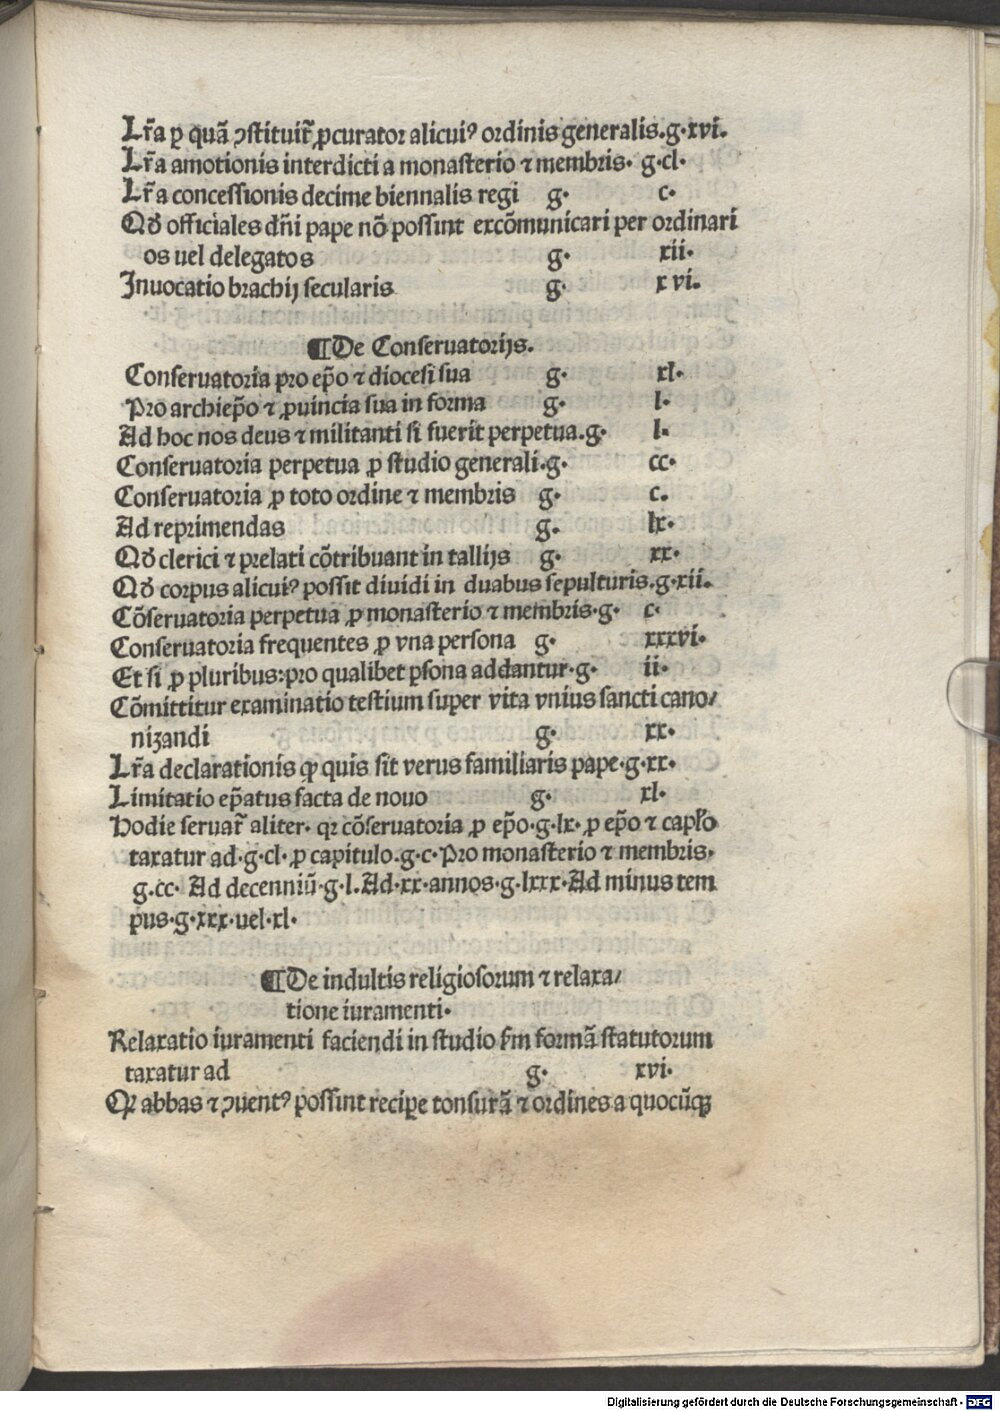 Lr̃a ꝑ quã ꝯstituit᷑ ꝓcurator alicuiꝰ ordinis generalis.g·xvi.
Lr̃a amotionis interdicti a monasterio ⁊ membris· g·cl·
Lr̃a concessionis decime biennalis regi g· c·
Qď officiales dñi pape nõ possint excõmunicari per ordinari
os uel delegatos g· xii·
Inuocatio brachij secularis g· xvi.
¶De Conseruatorijs.
Conseruatoria pro ep̃o ⁊ diocesi sua g· xl·
Pro archiep̃o ⁊ ꝓuincia sua in forma g· l·
Ad hoc nos deus ⁊ militanti si fuerit perpetua.g· l·
Conseruatoria perpetua ꝓ studio generali.g· cc·
Conseruatoria ꝓ toto ordine ⁊ membris g· c.
Ad reprimendas g. lx·
Qď clerici ⁊ prelati cõtribuant in tallijs g· xx·
Qď corpus alicuiꝰ possit diuidi in duabus sepulturis.g·xii.
Cõseruatoria perpetua ꝓ monasterio ⁊ membris·g· c·
Conseruatoria frequentes ꝓ vna persona g· xxxvi·
Et si ꝓ pluribus:pro qualibet ꝑsona addantur·g· ii·
Cõmittitur examinatio testium super vita vnius sancti cano/
nizandi g· xx·
Lr̃a declarationis ꝙ quis sit verus familiaris pape·g·xx·
Limitatio ep̃atus facta de nouo g· xl·
Hodie seruat᷑ aliter· qꝛ cõseruatoria ꝓ ep̃o·g·lx· ꝓ ep̃o ⁊ capľo
taxatur ad·g·cl· ꝓ capitulo.g·c·Pro monasterio ⁊ membris·
g.cc· Ad decenniũ·g·l.Ad·xx·annos·g·lxxx·Ad minus tem
pus·g·xxx·uel·xl·
¶De indultis religiosorum ⁊ relaxa/
tione iuramenti·
Relaxatio iuramenti faciendi in studio ẜm formã statutorum
taxatur ad g· xvi·
Qꝛ abbas ⁊ ꝯuentꝰ possint reciꝑe tonsurã ⁊ ordines a quocũqꝫ
Digitalisierung gefördert durch die Deutsche Forschungsgemeinschaft · DFG